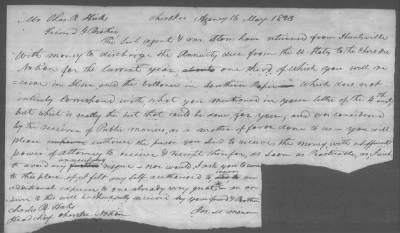 Mr Chas. R. Hicks Cherokee Agency 16 May 1823
Friend & Brother
The Sub agent & our Store have returned from Huntsville
with money to discharge the Annuity due from the U. States to the Cherokee
Nation for the Current year, one third of which you will re
ceive in Silver and the ballance in Southern paper which does not
entirely Correspond with what you mentioned in your letter of the 4th inst
but which is really the best that could be done for you, and was considered
by the receiver of Public monies, as a matter of favor done to us you will
please authorise the person you send to receive the money with a sufficient
power of attorney to receive & receipt therefor, as soon as Practicable, as I wish
to avoid any unnecessary expense nor would I ask you to come
to this place if I felt my self authorised to an
additional expense to one already very great an an
swer to this will be thankfully received by your friend & Brother
Charles R. Hicks
Head chief Cherokee Nation